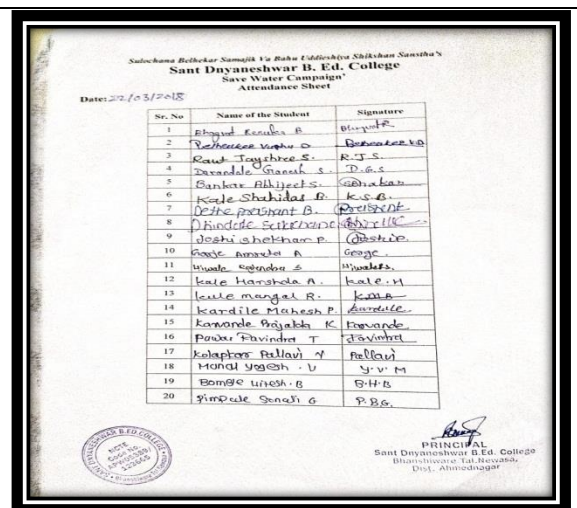 Sulochana Belhekar Samajik Va Bahu Uddieshiya Shikshan Sanstha's
Sant Dnyaneshwar B. Ed. College
Save Water Campaign'
Attendance Sheet
Date: 22/03/2018
Sr. No Name of the Student Signature
1 Bhagwat Renuka B
2 Belhekar D
3 Raut Jayshree S. R.J.S.
4 Darandale Ganesh S. D.G.S
5 Bankar Abhijeet S.
6 Kale Shahidas B. K.S.B.
7 Dethe prashant B.
8
9 Joshi shekhar P. Joshi
10 A
11 Hiwale Rajendra S
12 kale Harshda A. kale.H
13 kule mangal R.
14 kardile Mahesh P. kardile
15 Karvande K Karvande
16 Pawar Ravindra T Ravindra
17 Kolapkar Pallavi Pallavi
18 Yogesh . V Y.V.M
19 . B B.H.B
20 Pimpale Sonali G P.B.G.
PRINCIPAL
Sant Dnyaneshwar B.Ed. College
Bhanshiware Tal.Newasa,
Dist. Ahmednagar
SANT DNYANESHWAR B.ED.COLLEGE
NCTE
Code No.